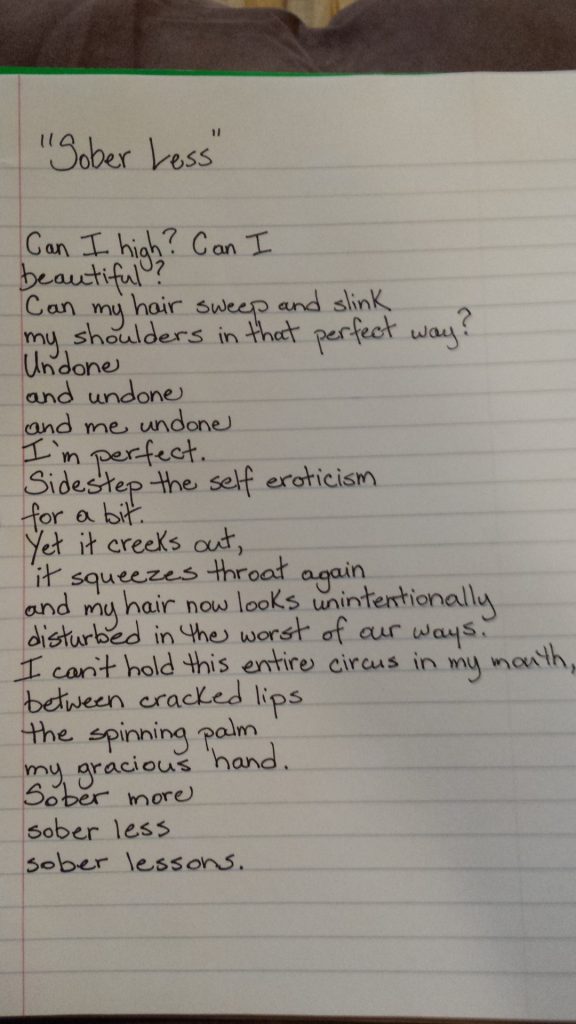 "Sober Less"
Can I high? Can I
beautiful?
Can my hair sweep and slink
my shoulders in that perfect way?
Undone
and undone
and me undone
I'm perfect.
Sidestep the self eroticism
for a bit.
Yet it creeks out,
it squeezes throat again
and my hair now looks unintentionally
disturbed in the worst of our ways.
I can't hold this entire circus in my mouth,
between cracked lips
the spinning palm
my gracious hand.
Sober more
sober less
sober lessons.